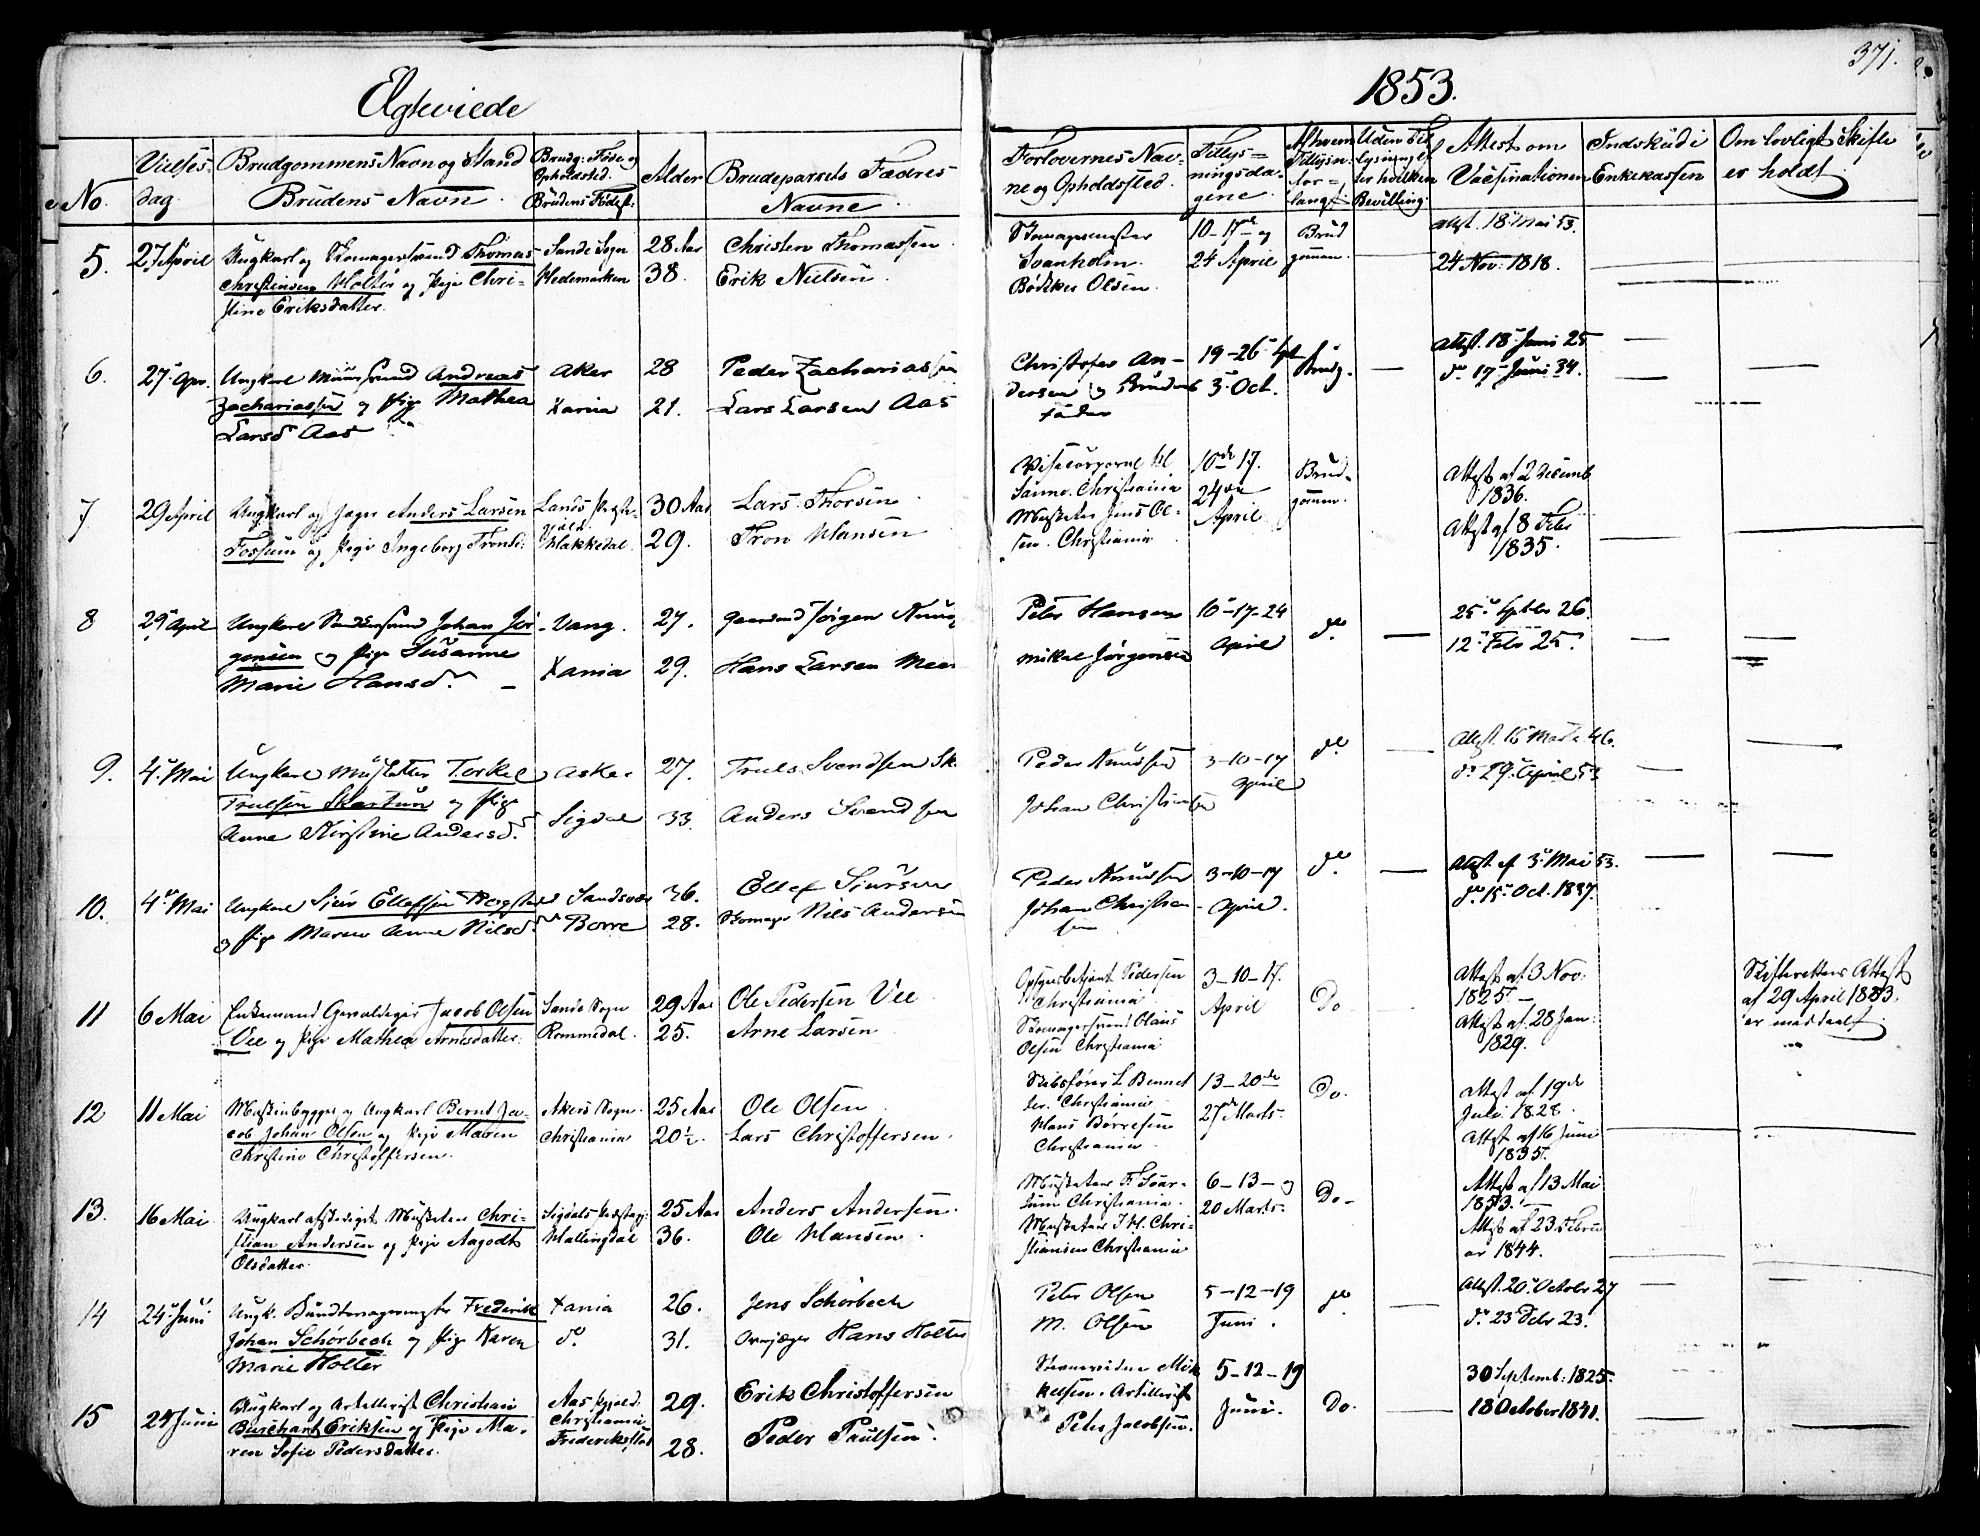 371.
Ægteviede
1853.
No.
Vielses-
dag.
Brudgommens Navn og Stand
Brudens Navn.
Brudg: Føde og
Opholdsted.
Brudens Fødest:
Alder
Brudeparrets Fædres
Navne.
Forlovernes Nav-
ne og Opholdssted.
Tillys=
ningsda-
gene.
Af hvem
Tillysn.
for=
langt
Uden Til
lysning ef
ter hvilken
Bevilling.
Attest om
Vaccinationen
Indskud i
Enkekassen
Om lovligt Skifte
er holdt.
5. 27 April Ungkarl og Skomagersvend Thomas Sande Sogn 28 Aar Christen Thomassen
Christensen Holter og Pige Chri- Hedemarken 38. Erik Nielsen
stine Eriksdatter.
Skomagermester 10-17de og Brud attest. 18 Mai 53.
Svanholm. 24 April gommen. 24 Nov: 1818.
Bødker Olsen.
6. 27 Apr. Ungkarl Muursvend Andreas Aker 28 Peder Zachariassen
Zachariassen og Pige Mathea Xania 21. Lars Larsen Aas
Larsd Aas
Christofer An- 19-26 Spt Brudg. Attest. 18 Juni 25
dersen og Brudens 3 Oct. do 17 Juni 34.
fader
7 29 April Ungkarl og Jæger Anders Larsen Lands Præste- 30 Aar Lars Thorsen
gjæld.
Fossum og Pige Ingeborg Tronsd: Hakkedal. 29. Tron Hansen
Vicecorporal 10de 17. Brud- Attest af 2 Decemb
Christiania 24de gomm. 1836.
Musketer Jens Ol- April Attest af 8 Febr
sen. Christiania 1835.
8 29 April Ungkarl Johan Jør- Vang. 27. Jørgen
gensen og Pige Susanne
Marie Hansd. Xania 29. Hans Larsen
Peter Hansen 10-17-24 do. 25 Septbr 26.
Mikal Jørgensen April 12 Febr 25.
9. 4 Mai Ungkarl Musketer Torkel Asker 27. Truls Svendsen Sk
Truelsen Skartum og Pige
Anne Kirstine Andersd. Sigdal 33. Anders Svendsen
Peder Knudsen 3-10-17 do Attest. 15 Marts 46.
Johan Christiansen April do 29 April 53
10. 4 Mai Ungkarl Siur Ellefsen Bergstad Sandsvær 36. Ellef Siursen
og Pige Maren Anne Nilsd. Borre 28. Skomager Nils Andersen
Peder Knudsen 3-10-17 do. Attest af 3 Mai 53.
Johan Christian April. do 15 Oct. 1837.
sen
11 6 Mai Enkemand Gevaldiger Jacob Olsen Sande Sogn 29 Aar Ole Pedersen Vee
Vee og Pige Mathea Arnesdatter: Rommedal. 25. Arne Larsen
Opsynsbetjent Pedersen 3-10-17. Do Attest af 3 Nov: Skifterettens Attest
Christiania April 1825. af 29 April 1853.
Skomagersvend Olaus Attest af 28 Jan: er meddeelt.
Olsen Christiania 1829.
12 11 Mai Maskinbygger og Ungkarl Bernt Ja- Akers Sogn. 25 Aar Ole Olsen
cob Johan Olsen og Pige Maren Christiania 20½. Lars Christoffersen.
Christine Christoffersen.
Skibsfører L Bennet 13-20de Do. Attest af 19de
ter. Christiania 27de Marts. Juli 1828.
Hans Børresen Attest af 16 Juni
Christiania 1835.
13. 16 Mai Ungkarl afskediget Musketer Chri- Sigdals Præstegj: 25 Aar Anders Andersen.
stian Andersen og Pige Aagodt Hallingdal 36. Ole Hansen
Olsdatter.
Musketeer F. Svar- 6-13-og Do- Attest af 13 Mai
tum Christiania. 20 Marts. 1853.
Musketeer J. H. Chri- Attest af 23 Febru
stiansen Christiania ar 1844.
14 24 Juni Ungk. Bundtmagermester Frederik Xania 26. Jens Schørbech
Johan Schørbech og Pige Karen do. 31. Hans Holter
Marie Holter
Peter Olsen 5-12-19 do Attest. 20 October 27
M. Olsen Juni. do 23 Febr 23.
15 24 Juni Ungkarl og Artillerist Christian Aas Pgjæld. 29. Erik Christoffersen
Burchart Eriksen og Pige Ma- Christiania
ren Sofie Pedersdatter. Frederikstad 28. Peder Paulsen.
Mik 5-12-19 Do. 30 Septemb: 1825.
kelsen. Artillerist Juni. 18 October 1841.
Peter Jacobsen.